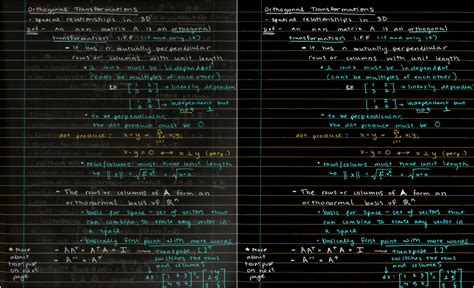 Orthogonal Transformations
- spatial relationships in 3D
Def - An nxn matrix A is an orthogonal
transformation IFF (if and only if)
• it has n mutually perpendicular
rows or columns with unit length
• 2 rows must be independent
(can't be multiples of each other)
→ linearly dependent
→ independent but not ⊥
• to be perpendicular,
the dot product must be 0
dot product:
x·y=0 ↔ x⊥y (perp.)
• rows/columns must have unit length
- The rows or columns of A form an
orthonormal basis of ℝⁿ
• basis for space - set of vectors that
can combine to create any vector in
a space
• basically first point with more words
* More
about
transpose
on next
page
- AAᵀ = AᵀA = I
- A⁻¹ = Aᵀ
transpose [ ]ᵀ
switches the rows
and columns
Orthogonal Transformations
- spatial relationships in 3D
Def - An nxn matrix A is an orthogonal
transformation IFF (if and only if)
• it has n mutually perpendicular
rows or columns with unit length
• 2 rows must be independent
(can't be multiples of each other)
→ linearly dependent
→ independent but not ⊥
• to be perpendicular,
the dot product must be 0
dot product:
x·y=0 ↔ x⊥y (perp.)
• rows/columns must have unit length
- The rows or columns of A form an
orthonormal basis of ℝⁿ
• basis for space - set of vectors that
can combine to create any vector in
a space
• basically first point with more words
* More
about
transpose
on next
page
- AAᵀ = AᵀA = I
- A⁻¹ = Aᵀ
transpose [ ]ᵀ
switches the rows
and columns